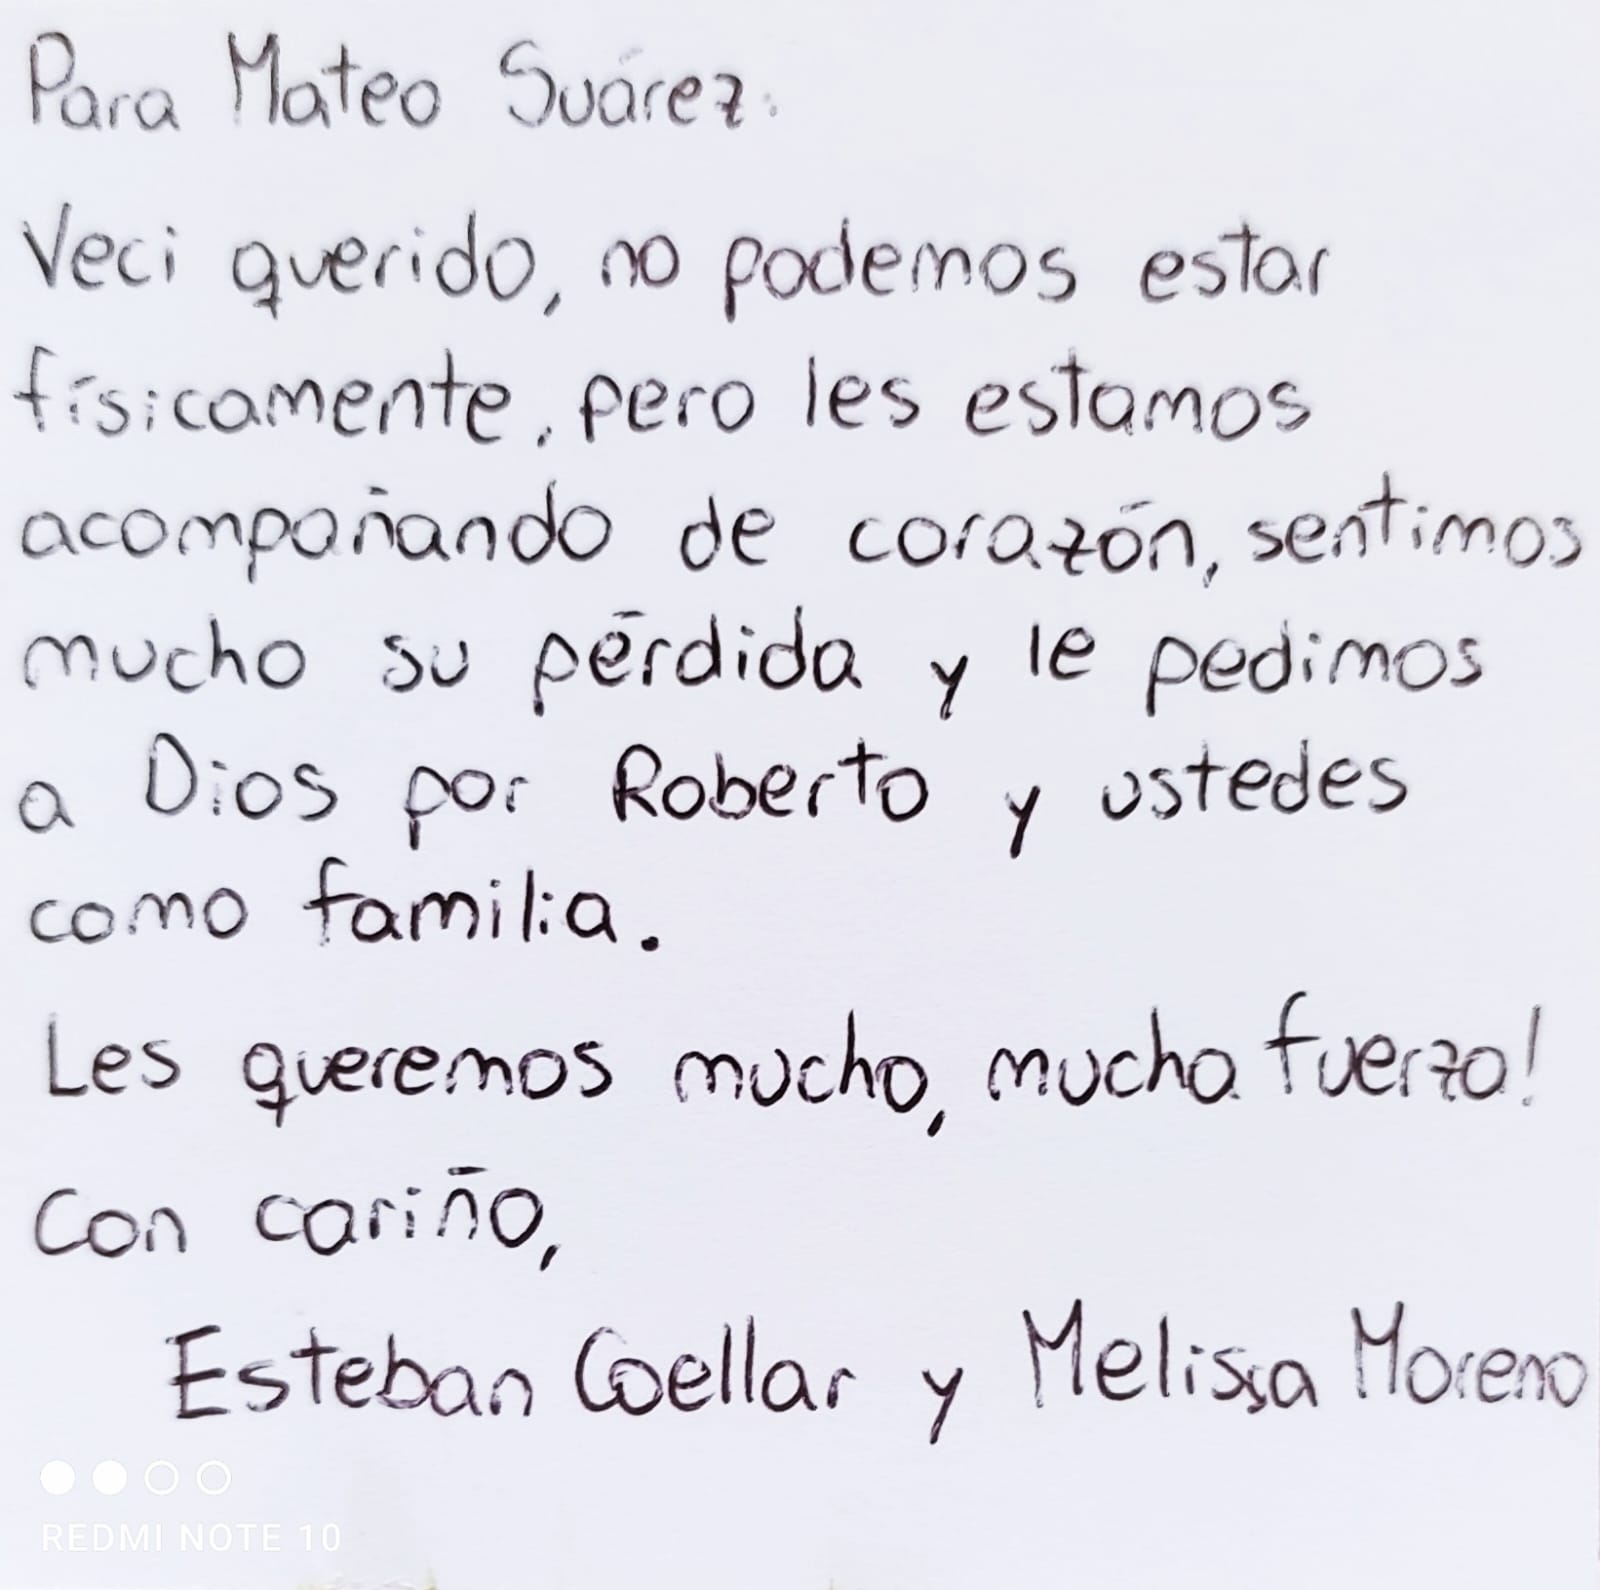 Para Mateo Suárez:
Veci querido, no podemos estar
físicamente, pero les estamos
acompañando de corazón, sentimos
mucho su pérdida y le pedimos
a Dios por Roberto y ustedes
como familia.
Les queremos mucho, mucha fuerza!
Con cariño,
Esteban Coellar y Melissa Moreno
REDMI NOTE 10